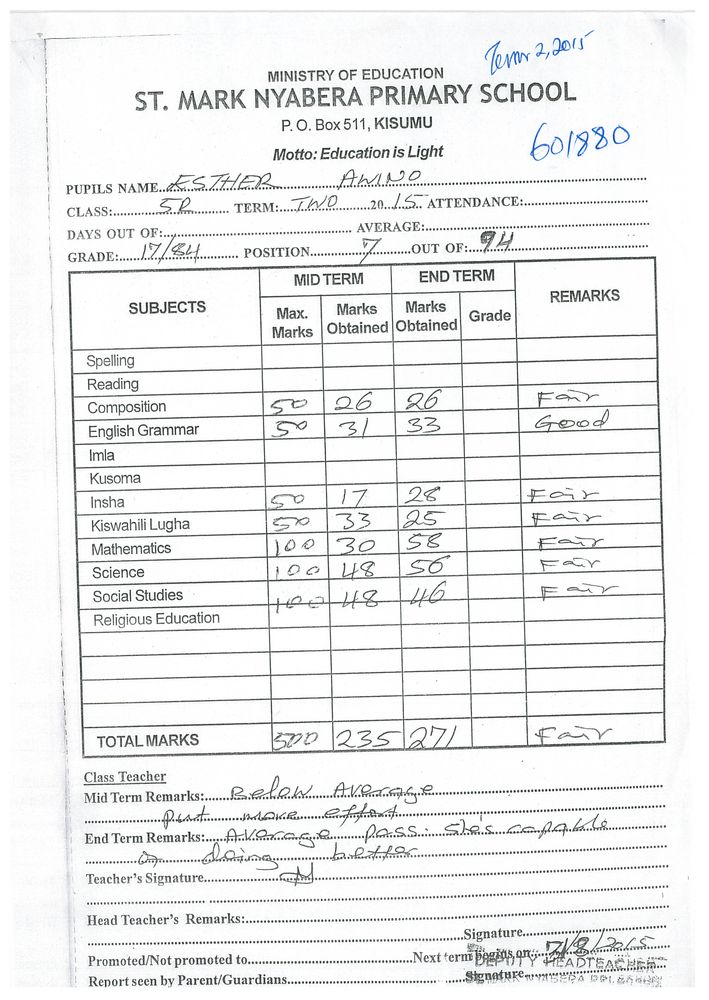 Term 2, 2015
MINISTRY OF EDUCATION
ST. MARK NYABERA PRIMARY SCHOOL
P. O. Box 511, KISUMU
601880
Motto: Education is Light
PUPILS NAME..ESTHER AWINO
CLASS: 5R TERM: TWO 2015 ATTENDANCE:
DAYS OUT OF: AVERAGE:
GRADE: 17/84 POSITION 7 OUT OF: 94
SUBJECTS MID TERM END TERM REMARKS
Max. Marks Marks Obtained Marks Obtained Grade
Spelling
Reading
Composition 50 26 26 Fair
English Grammar 50 31 33 Good
Imla
Kusoma
Insha 50 17 28 Fair
Kiswahili Lugha 50 33 25 Fair
Mathematics 100 30 58 Fair
Science 100 48 56 Fair
Social Studies 100 48 46 Fair
Religious Education
TOTAL MARKS 500 235 271 Fair
Class Teacher
Mid Term Remarks: Below Average
Put more effort
End Term Remarks: Average pass. She's capable
doing better
Teacher's Signature
Head Teacher's Remarks:
Signature
Promoted/Not promoted to Next term begins on: 31/8/2015
DEPUTY HEADTEACHER
Report seen by Parent/Guardians Signature